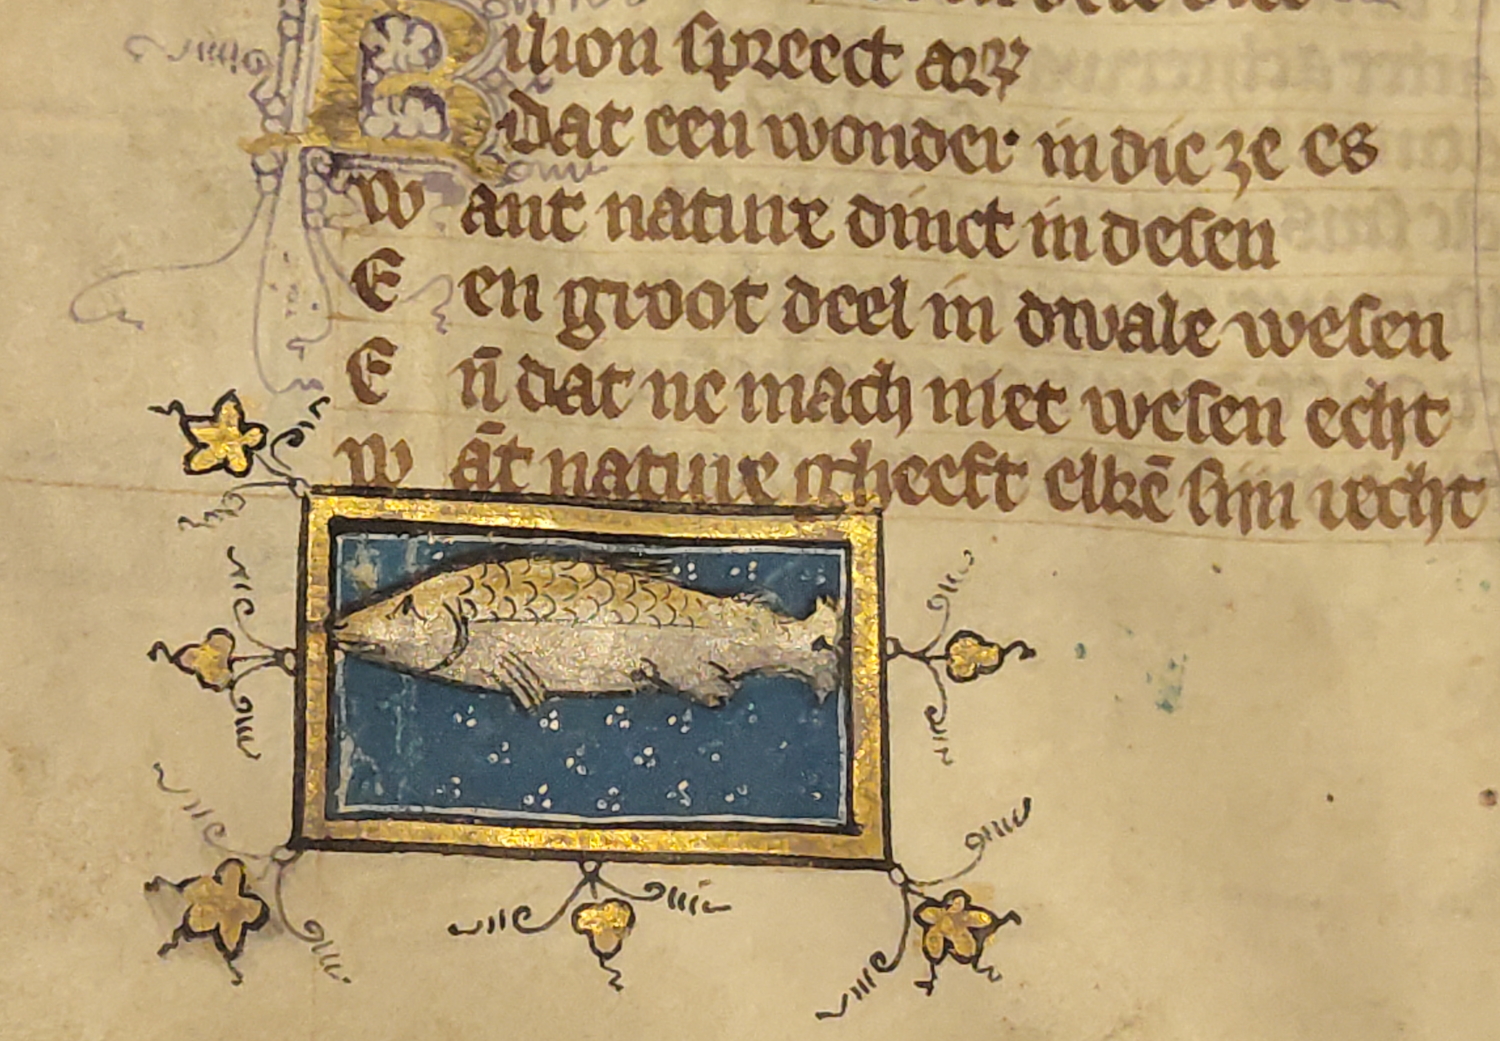 Bilion spreect ar
dat een wonder in die ze es
Want nature dinct in desen
Een groot deel in dwale wesen
En̄ dat ne mach niet wesen echt
Wāt nature gheeft elkē sijn recht